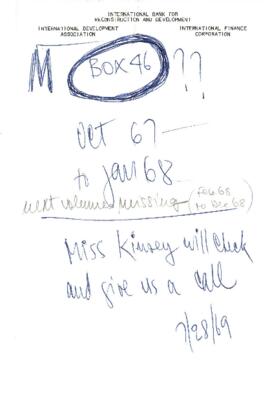 INTERNATIONAL BANK FOR
RECONSTRUCTION AND DEVELOPMENT
INTERNATIONAL DEVELOPMENT ASSOCIATION
INTERNATIONAL FINANCE CORPORATION
M BOX 46 ??
Oct 67 —
to Jan 68
next volumes missing (Feb 68
to Dec 68)
Miss Kinsey will check
and give us a call
7/28/69